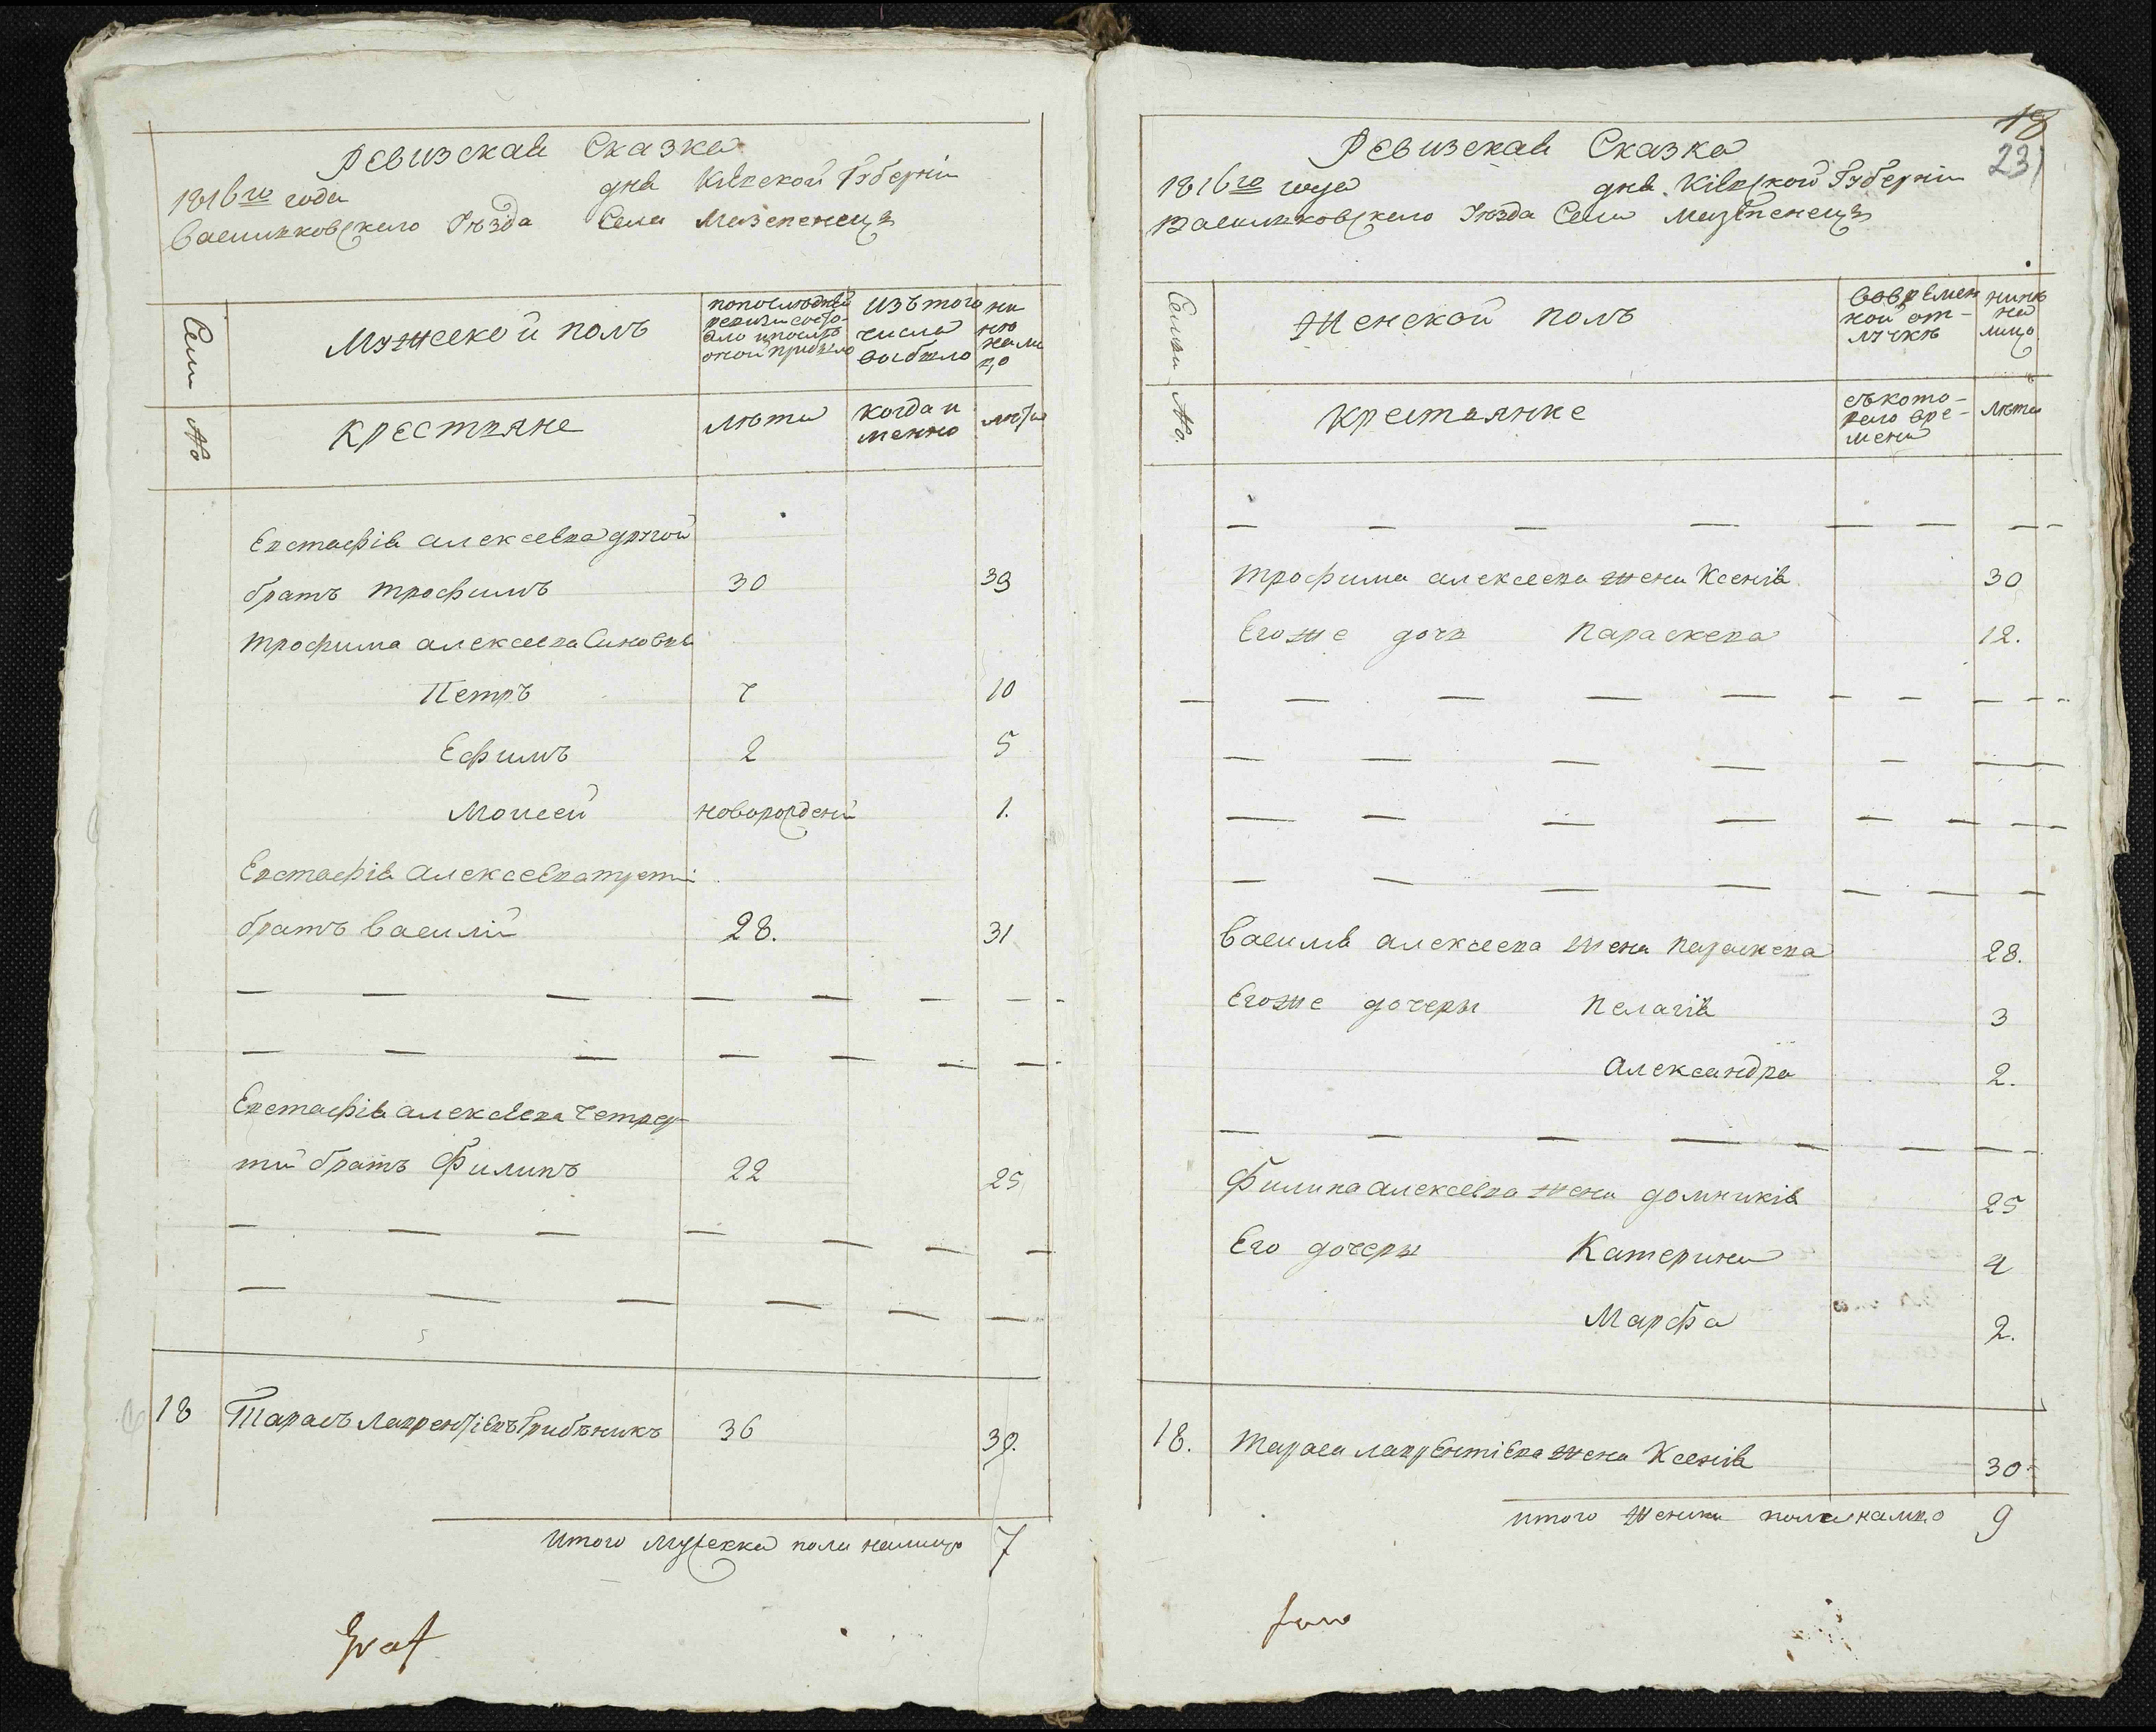 Ревизская Сказка
1816го года дня Кіевской Губерніи
Васильковского Уѣзда Села Мазепенецъ
Семи №
Мужской полъ
попоследней ревизи состояло ипослѣ оной прибыло
изътого числа выбыло
ны не на лицо
крестьяне
лѣта
когда именно
лѣта
Евстафія алексеева другой
братъ трофимъ 30 33
трофима алексеева Синовья
Петръ 7 10
Ефимъ 2 5
Моисей новорожденй 1.
Евстафія алексеева третій
братъ василій 28. 31
Евстафія алексеева четвер
тий братъ Филипъ 22 25
18 Тарасъ Лаврентіевъ Грибѣникъ 36 39.
Итого мужеска пола налицо 7
Graf
18
231
Ревизская Сказка
1816го года дня Кіевской Губерніи
Васильковского Уѣзда Села Мазепенецъ
Семьи №.
Женской полъ
вовременной отлучкѣ
нинѣ на лицо
крестьянке
съкоторого времени
лѣта
трофима алексеева жена Ксенія 30
Егоже дочь параскева 12.
василія алексеева жена параскева 28.
Егоже дочеры пелагія 3
александра 2.
Филипа алексеева жена домникія 25
Его дочеры Катерина 4
Марфа 2.
18. тараса лаврентіева жена Ксенія 30
итого женска пола налицо 9